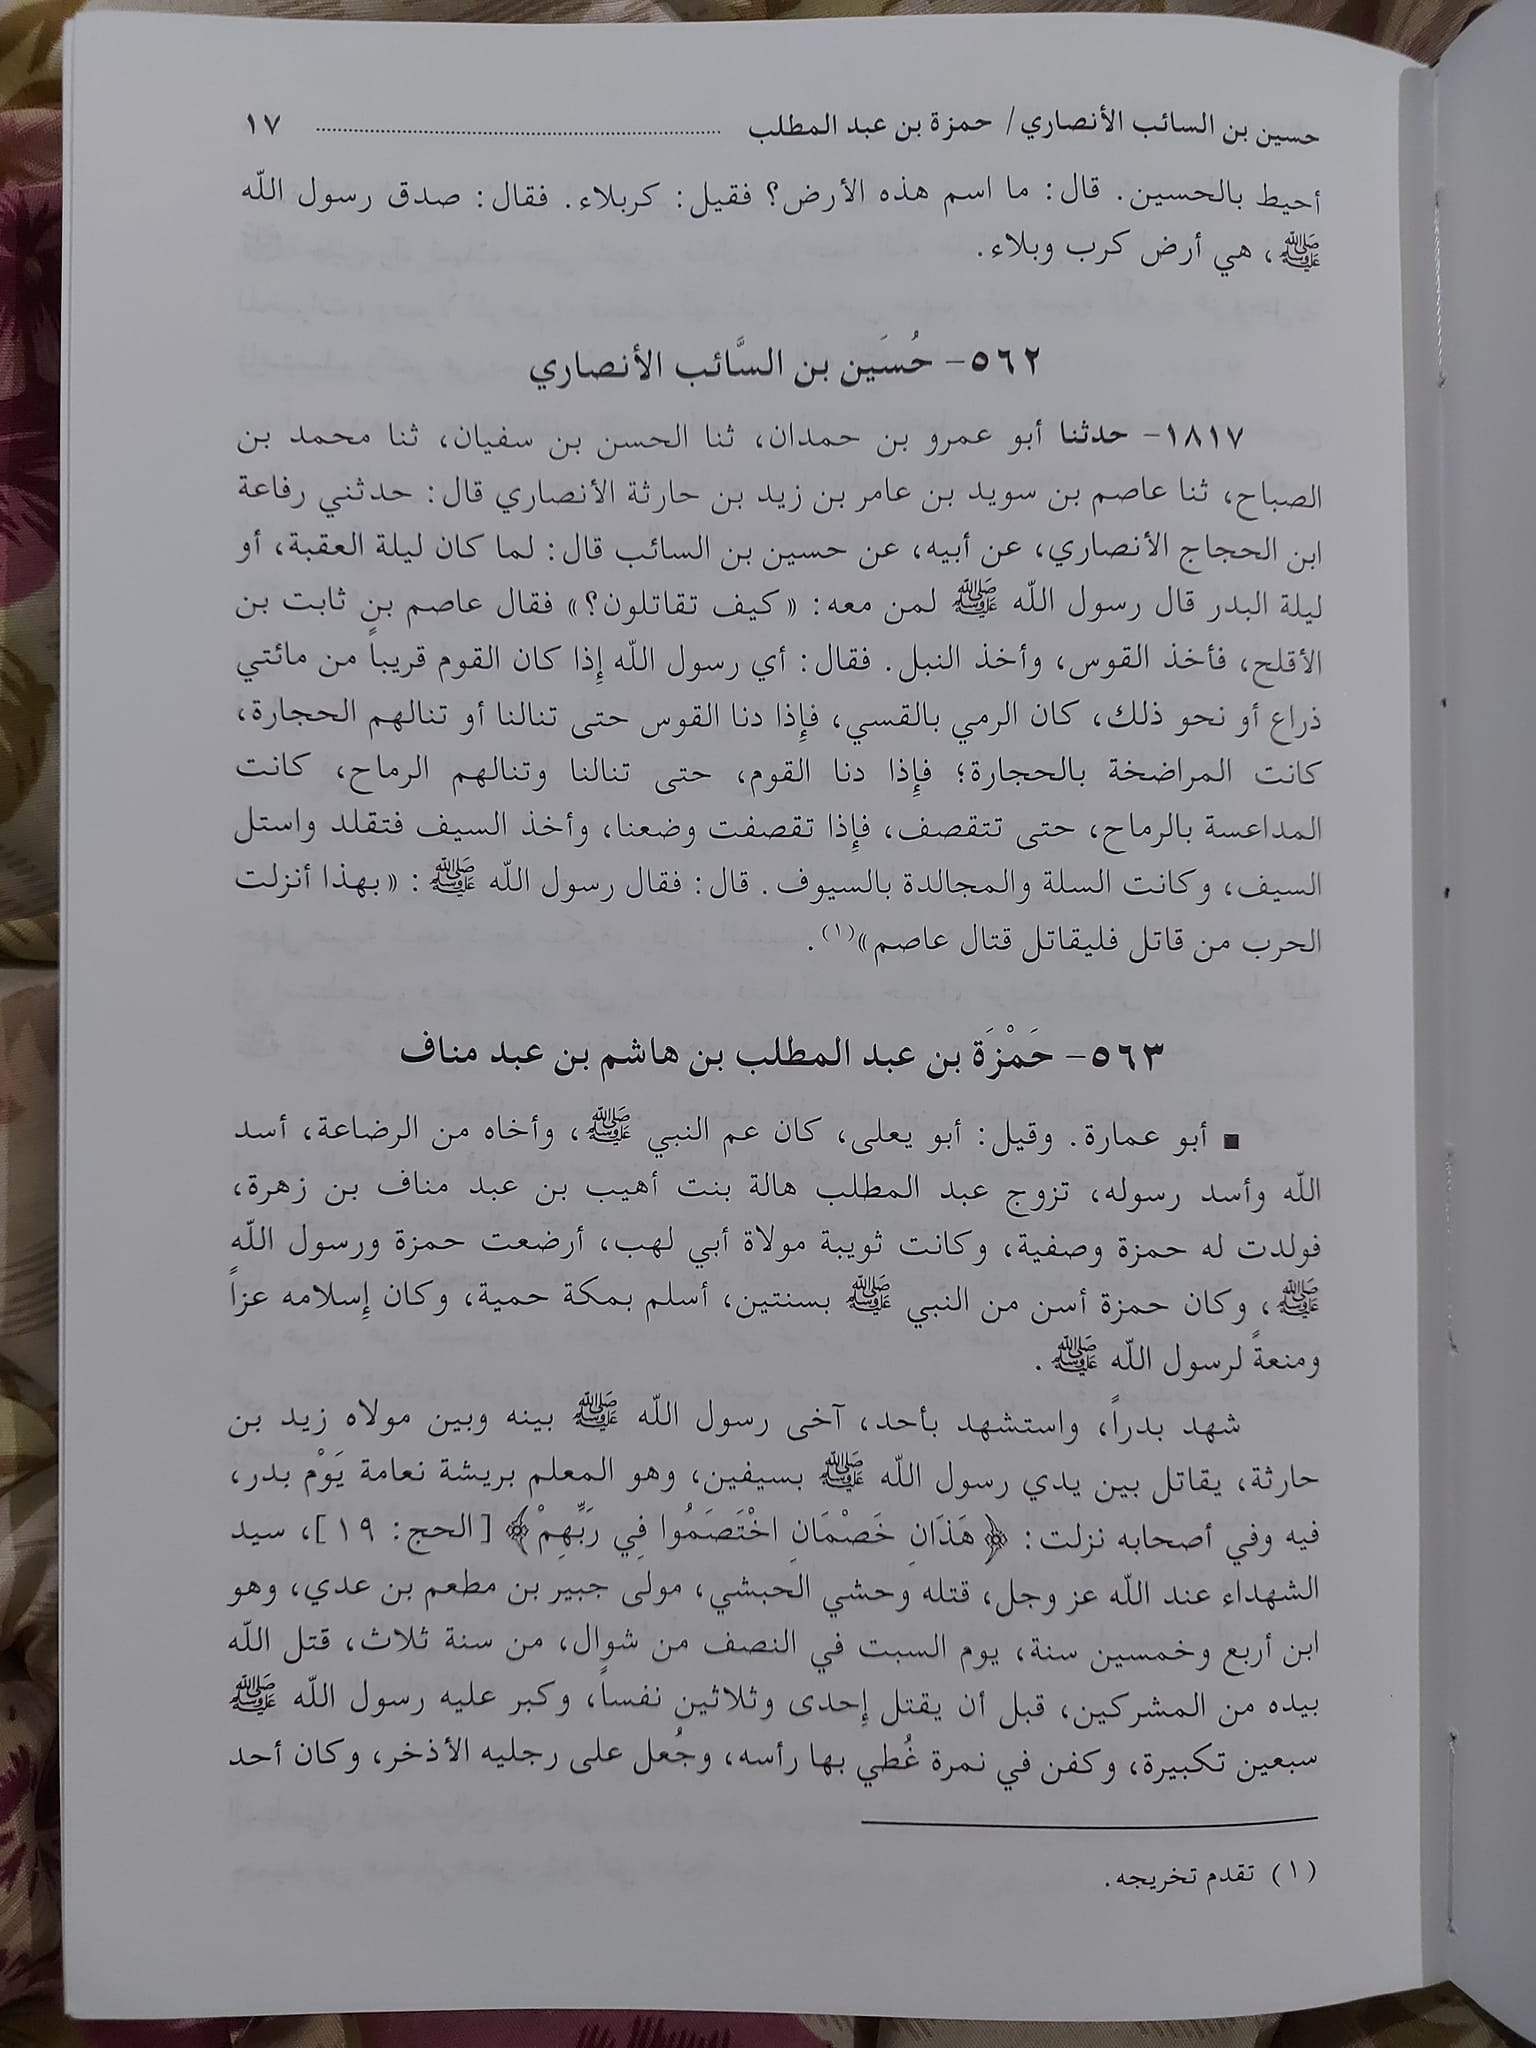 حسين بن السائب الأنصاري/ حمزة بن عبد المطلب ........................ ١٧
أحيط بالحسين. قال: ما اسم هذه الأرض؟ فقيل: كربلاء. فقال: صدق رسول اللّه
ﷺ، هي أرض كرب وبلاء.
٥٦٢- حُسَين بن السَّائب الأنصاري
١٨١٧- حدثنا أبو عمرو بن حمدان، ثنا الحسن بن سفيان، ثنا محمد بن
الصباح، ثنا عاصم بن سويد بن عامر بن زيد بن حارثة الأنصاري قال: حدثني رفاعة
ابن الحجاج الأنصاري، عن أبيه، عن حسين بن السائب قال: لما كان ليلة العقبة، أو
ليلة البدر قال رسول اللّه ﷺ لمن معه: «كيف تقاتلون؟» فقال عاصم بن ثابت بن
الأقلح، فأخذ القوس، وأخذ النبل. فقال: أي رسول اللّه إذا كان القوم قريباً من مائتي
ذراع أو نحو ذلك، كان الرمي بالقسي، فإذا دنا القوس حتى تنالنا أو تنالهم الحجارة،
كانت المراضخة بالحجارة؛ فإذا دنا القوم، حتى تنالنا وتنالهم الرماح، كانت
المداعسة بالرماح، حتى تتقصف، فإذا تقصفت وضعنا، وأخذ السيف فتقلد واستل
السيف، وكانت السلة والمجالدة بالسيوف. قال: فقال رسول اللّه ﷺ: «بهذا أنزلت
الحرب من قاتل فليقاتل قتال عاصم»(١).
٥٦٣- حَمْزَة بن عبد المطلب بن هاشم بن عبد مناف
■ أبو عمارة. وقيل: أبو يعلى، كان عم النبي ﷺ، وأخاه من الرضاعة، أسد
اللّه وأسد رسوله، تزوج عبد المطلب هالة بنت أهيب بن عبد مناف بن زهرة،
فولدت له حمزة وصفية، وكانت ثويبة مولاة أبي لهب، أرضعت حمزة ورسول اللّه
ﷺ، وكان حمزة أسن من النبي ﷺ بسنتين، أسلم بمكة حمية، وكان إسلامه عزاً
ومنعةً لرسول اللّه ﷺ.
شهد بدراً، واستشهد بأحد، آخى رسول اللّه ﷺ بينه وبين مولاه زيد بن
حارثة، يقاتل بين يدي رسول اللّه ﷺ بسيفين، وهو المعلم بريشة نعامة يَوْم بدر،
فيه وفي أصحابه نزلت: ﴿هَذَانِ خَصْمَانِ اخْتَصَمُوا فِي رَبِّهِمْ﴾ [الحج: ١٩]، سيد
الشهداء عند اللّه عز وجل، قتله وحشي الحبشي، مولى جبير بن مطعم بن عدي، وهو
ابن أربع وخمسين سنة، يوم السبت في النصف من شوال، من سنة ثلاث، قتل اللّه
بيده من المشركين، قبل أن يقتل إحدى وثلاثين نفساً، وكبر عليه رسول اللّه ﷺ
سبعين تكبيرة، وكفن في نمرة غُطي بها رأسه، وجُعل على رجليه الأذخر، وكان أحد
(١) تقدم تخريجه.